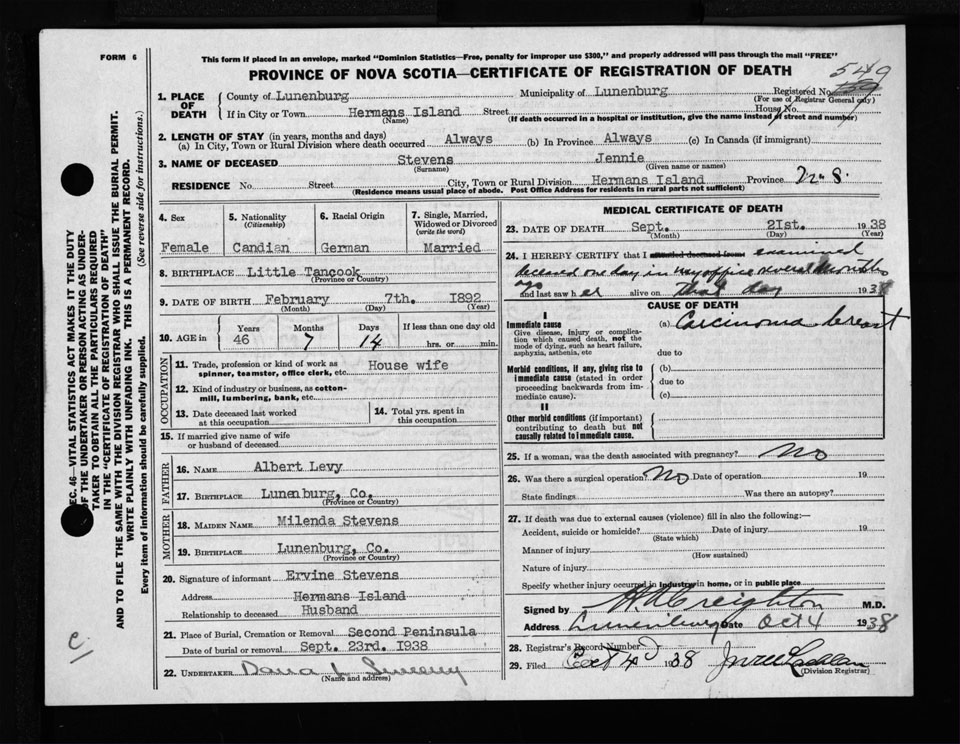 FORM 6
This form if placed in an envelope, marked "Dominion Statistics—Free, penalty for improper use $300," and properly addressed will pass through the mail "FREE"
PROVINCE OF NOVA SCOTIA—CERTIFICATE OF REGISTRATION OF DEATH
549
1. PLACE OF DEATH
County of Lunenburg Municipality of Lunenburg Registered No.
(For use of Registrar General only)
If in City or Town Hermans Island Street House No.
(Name) (If death occurred in a hospital or institution, give the name instead of street and number)
2. LENGTH OF STAY (in years, months and days)
(a) In City, Town or Rural Division where death occurred Always (b) In Province Always (c) In Canada (if immigrant)
3. NAME OF DECEASED Stevens Jennie
(Surname) (Given name or names)
RESIDENCE No. Street City, Town or Rural Division Hermans Island Province N.S.
(Residence means usual place of abode. Post Office Address for residents in rural parts not sufficient)
4. Sex Female
5. Nationality (Citizenship) Candian
6. Racial Origin German
7. Single, Married, Widowed or Divorced (write the word) Married
8. BIRTHPLACE Little Tancook
(Province or Country)
9. DATE OF BIRTH February 7th. 1892
(Month) (Day) (Year)
10. AGE in Years 46 Months 7 Days 14 If less than one day old hrs. or min.
OCCUPATION
11. Trade, profession or kind of work as spinner, teamster, office clerk, etc. House wife
12. Kind of industry or business, as cotton-mill, lumbering, bank, etc.
13. Date deceased last worked at this occupation
14. Total yrs. spent in this occupation
15. If married give name of wife or husband of deceased
FATHER
16. NAME Albert Levy
17. BIRTHPLACE Lunenburg, Co.
(Province or Country)
MOTHER
18. MAIDEN NAME Milenda Stevens
19. BIRTHPLACE Lunenburg, Co.
(Province or Country)
20. Signature of informant Ervine Stevens
Address Hermans Island
Relationship to deceased Husband
21. Place of Burial, Cremation or Removal Second Peninsula
Date of burial or removal Sept. 23rd. 1938
22. UNDERTAKER
(Name and address)
MEDICAL CERTIFICATE OF DEATH
23. DATE OF DEATH Sept. 21st. 1938
(Month) (Day) (Year)
24. I HEREBY CERTIFY that I attended deceased from examined
deceased one day in my office several months
ago and last saw her alive on that day 1938
CAUSE OF DEATH
I
Immediate cause (a) Carcinoma breast
Give disease, injury or complication which caused death, not the mode of dying, such as heart failure, asphyxia, asthenia, etc due to
Morbid conditions, if any, giving rise to immediate cause (stated in order proceeding backwards from immediate cause). (b) due to (c)
II
Other morbid conditions (if important) contributing to death but not causally related to immediate cause.
25. If a woman, was the death associated with pregnancy? No
26. Was there a surgical operation? No Date of operation 19
State findings Was there an autopsy?
27. If death was due to external causes (violence) fill in also the following:—
Accident, suicide or homicide? Date of injury 19
(State which)
Manner of injury
(How sustained)
Nature of injury
Specify whether injury occurred in industry in home, or in public place
Signed by H A Creighton M.D.
Address Lunenburg Date Oct 4 1938
28. Registrar's Record Number
29. Filed Oct 4 1938
(Division Registrar)
SEC. 46—VITAL STATISTICS ACT MAKES IT THE DUTY
OF THE UNDERTAKER OR PERSON ACTING AS UNDER-
TAKER TO OBTAIN ALL THE PARTICULARS REQUIRED
IN THE "CERTIFICATE OF REGISTRATION OF DEATH"
AND TO FILE THE SAME WITH THE DIVISION REGISTRAR WHO SHALL ISSUE THE BURIAL PERMIT.
WRITE PLAINLY WITH UNFADING INK. THIS IS A PERMANENT RECORD.
Every item of information should be carefully supplied. (See reverse side for instructions.)